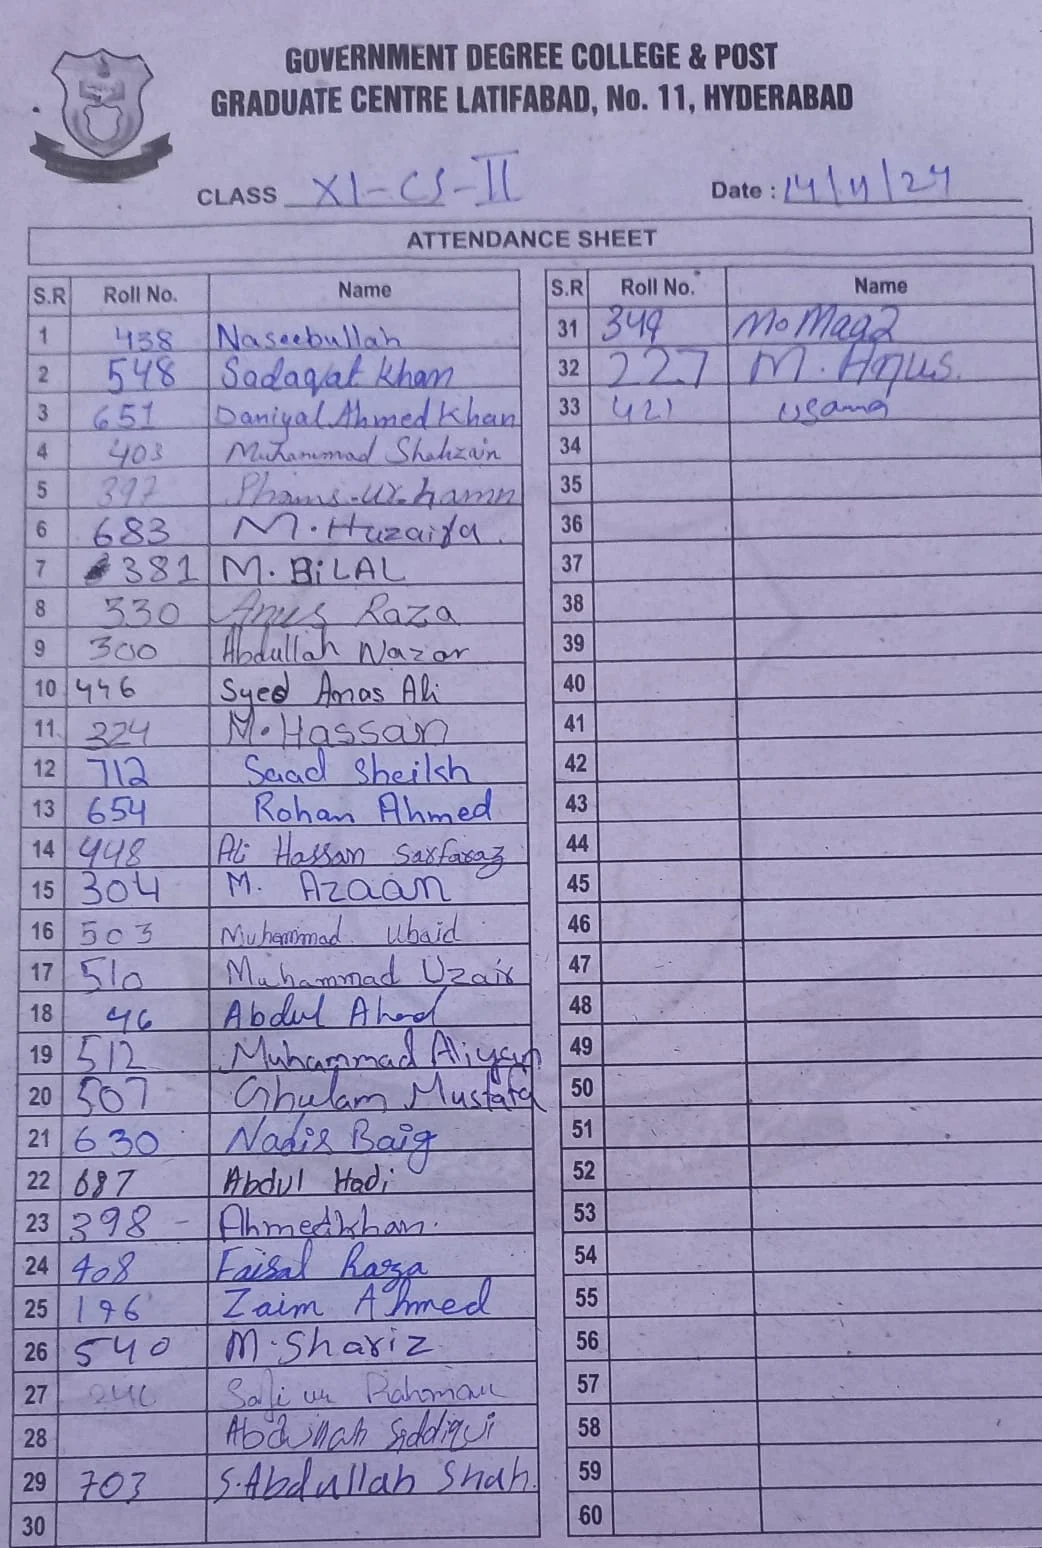 GOVERNMENT DEGREE COLLEGE & POST
GRADUATE CENTRE LATIFABAD, No. 11, HYDERABAD
CLASS XI-CS-II Date : 14/11/24
ATTENDANCE SHEET
S.R Roll No. Name
1 438 Naseebullah
2 548 Sadaqat Khan
3 651 Daniyal Ahmed Khan
4 403 Muhammad Shahzain
5 397
6 683 M. Huzaifa
7 381 M. BiLAL
8 330 Anus Raza
9 300 Abdullah Nazar
10 446 Syed Anas Ali
11 324 M. Hassan
12 712 Saad Sheikh
13 654 Rohan Ahmed
14 448 Ali Hassan Sarfaraz
15 304 M. Azaan
16 503 Muhammad Ubaid
17 510 Muhammad Uzair
18 46 Abdul Ahad
19 512 Muhammad Aliyan
20 507 Ghulam Mustafa
21 630 Nadir Baig
22 687 Abdul Hadi
23 398 - Ahmed khan.
24 408 Faisal Raza
25 196 Zaim Ahmed
26 540 M. Shariz
27 Safi ur Rahman
28 Abdullah Siddiqui
29 703 S. Abdullah Shah.
30
S.R Roll No. Name
31 349
32 227 M. Anus.
33 421 usama
34
35
36
37
38
39
40
41
42
43
44
45
46
47
48
49
50
51
52
53
54
55
56
57
58
59
60